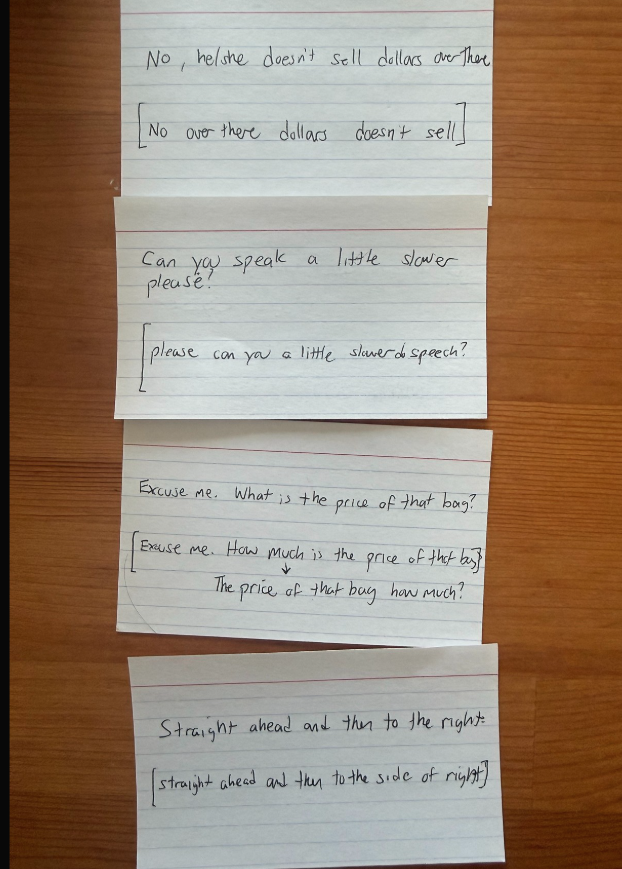 No, he/she doesn't sell dollars over there
[No over there dollars doesn't sell]
Can you speak a little slower
please?
[please can you a little slower do speech?
Excuse me. What is the price of that bag?
[Excuse me. How much is the price of that bag]
↓
The price of that bag how much?
Straight ahead and then to the right.
[straight ahead and then to the side of right]